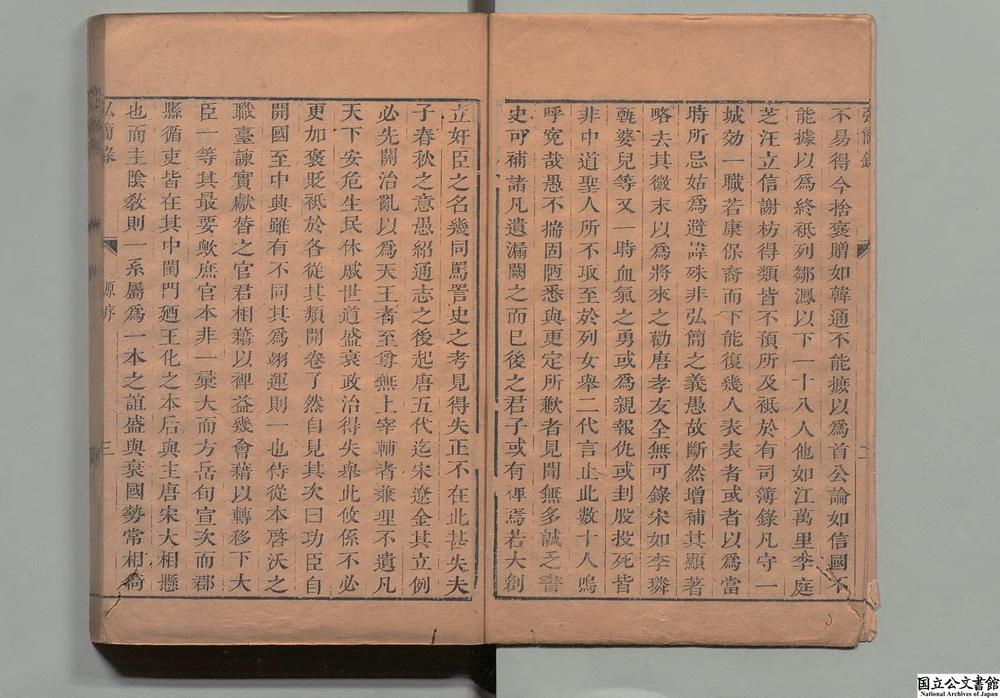 不易得今捨褒贈如韓通不能據以爲首公論如信國不
能據以爲終祗列鄒㵯以下一十八人他如江萬里李庭
芝汪立信謝枋得類皆不預所及祗於有司簿錄凡守一
城効一職若康保裔而下能復幾人表表者或者以爲當
時所忌姑爲避諱殊非弘簡之義愚故斷然增補其顯著
略去其微末以爲將來之勸唐孝友全無可錄宋如李璘
甄婆兒等又一時血氣之勇或爲親報仇或刲股投死皆
非中道聖人所不取至於列女舉二代言止此數十人嗚
呼寃哉愚不揣固陋悉與更定所歉者見聞無多誠乏書
史可補諸凡遺漏闕之而已後之君子或有俾焉若大創
立奸臣之名幾同罵詈史之考見得失正不在此甚失夫
子春秋之意愚紹通志之後起唐五代迄宋遼金其立例
必先關治亂以爲天王者至尊無上宰輔者燮理不遺凡
天下安危生民休戚世道盛衰政治得失舉此攸係不必
更加褒貶祗於各從其類開卷了然自見其次曰功臣自
開國至中興雖有不同其爲翊運則一也侍從本啓沃之
職臺諫實獻替之官君相藉以裨益幾會藉以轉移下大
臣一等其最要歟庶官本非一彙大而方岳旬宣次而郡
縣循吏皆在其中閨門廼王化之本后與主唐宋大相懸
也而主陰敎則一系屬爲一本之誼盛與衰國勢常相倚
弘簡錄
原序
三
二
国立公文書館
National Archives of Japan